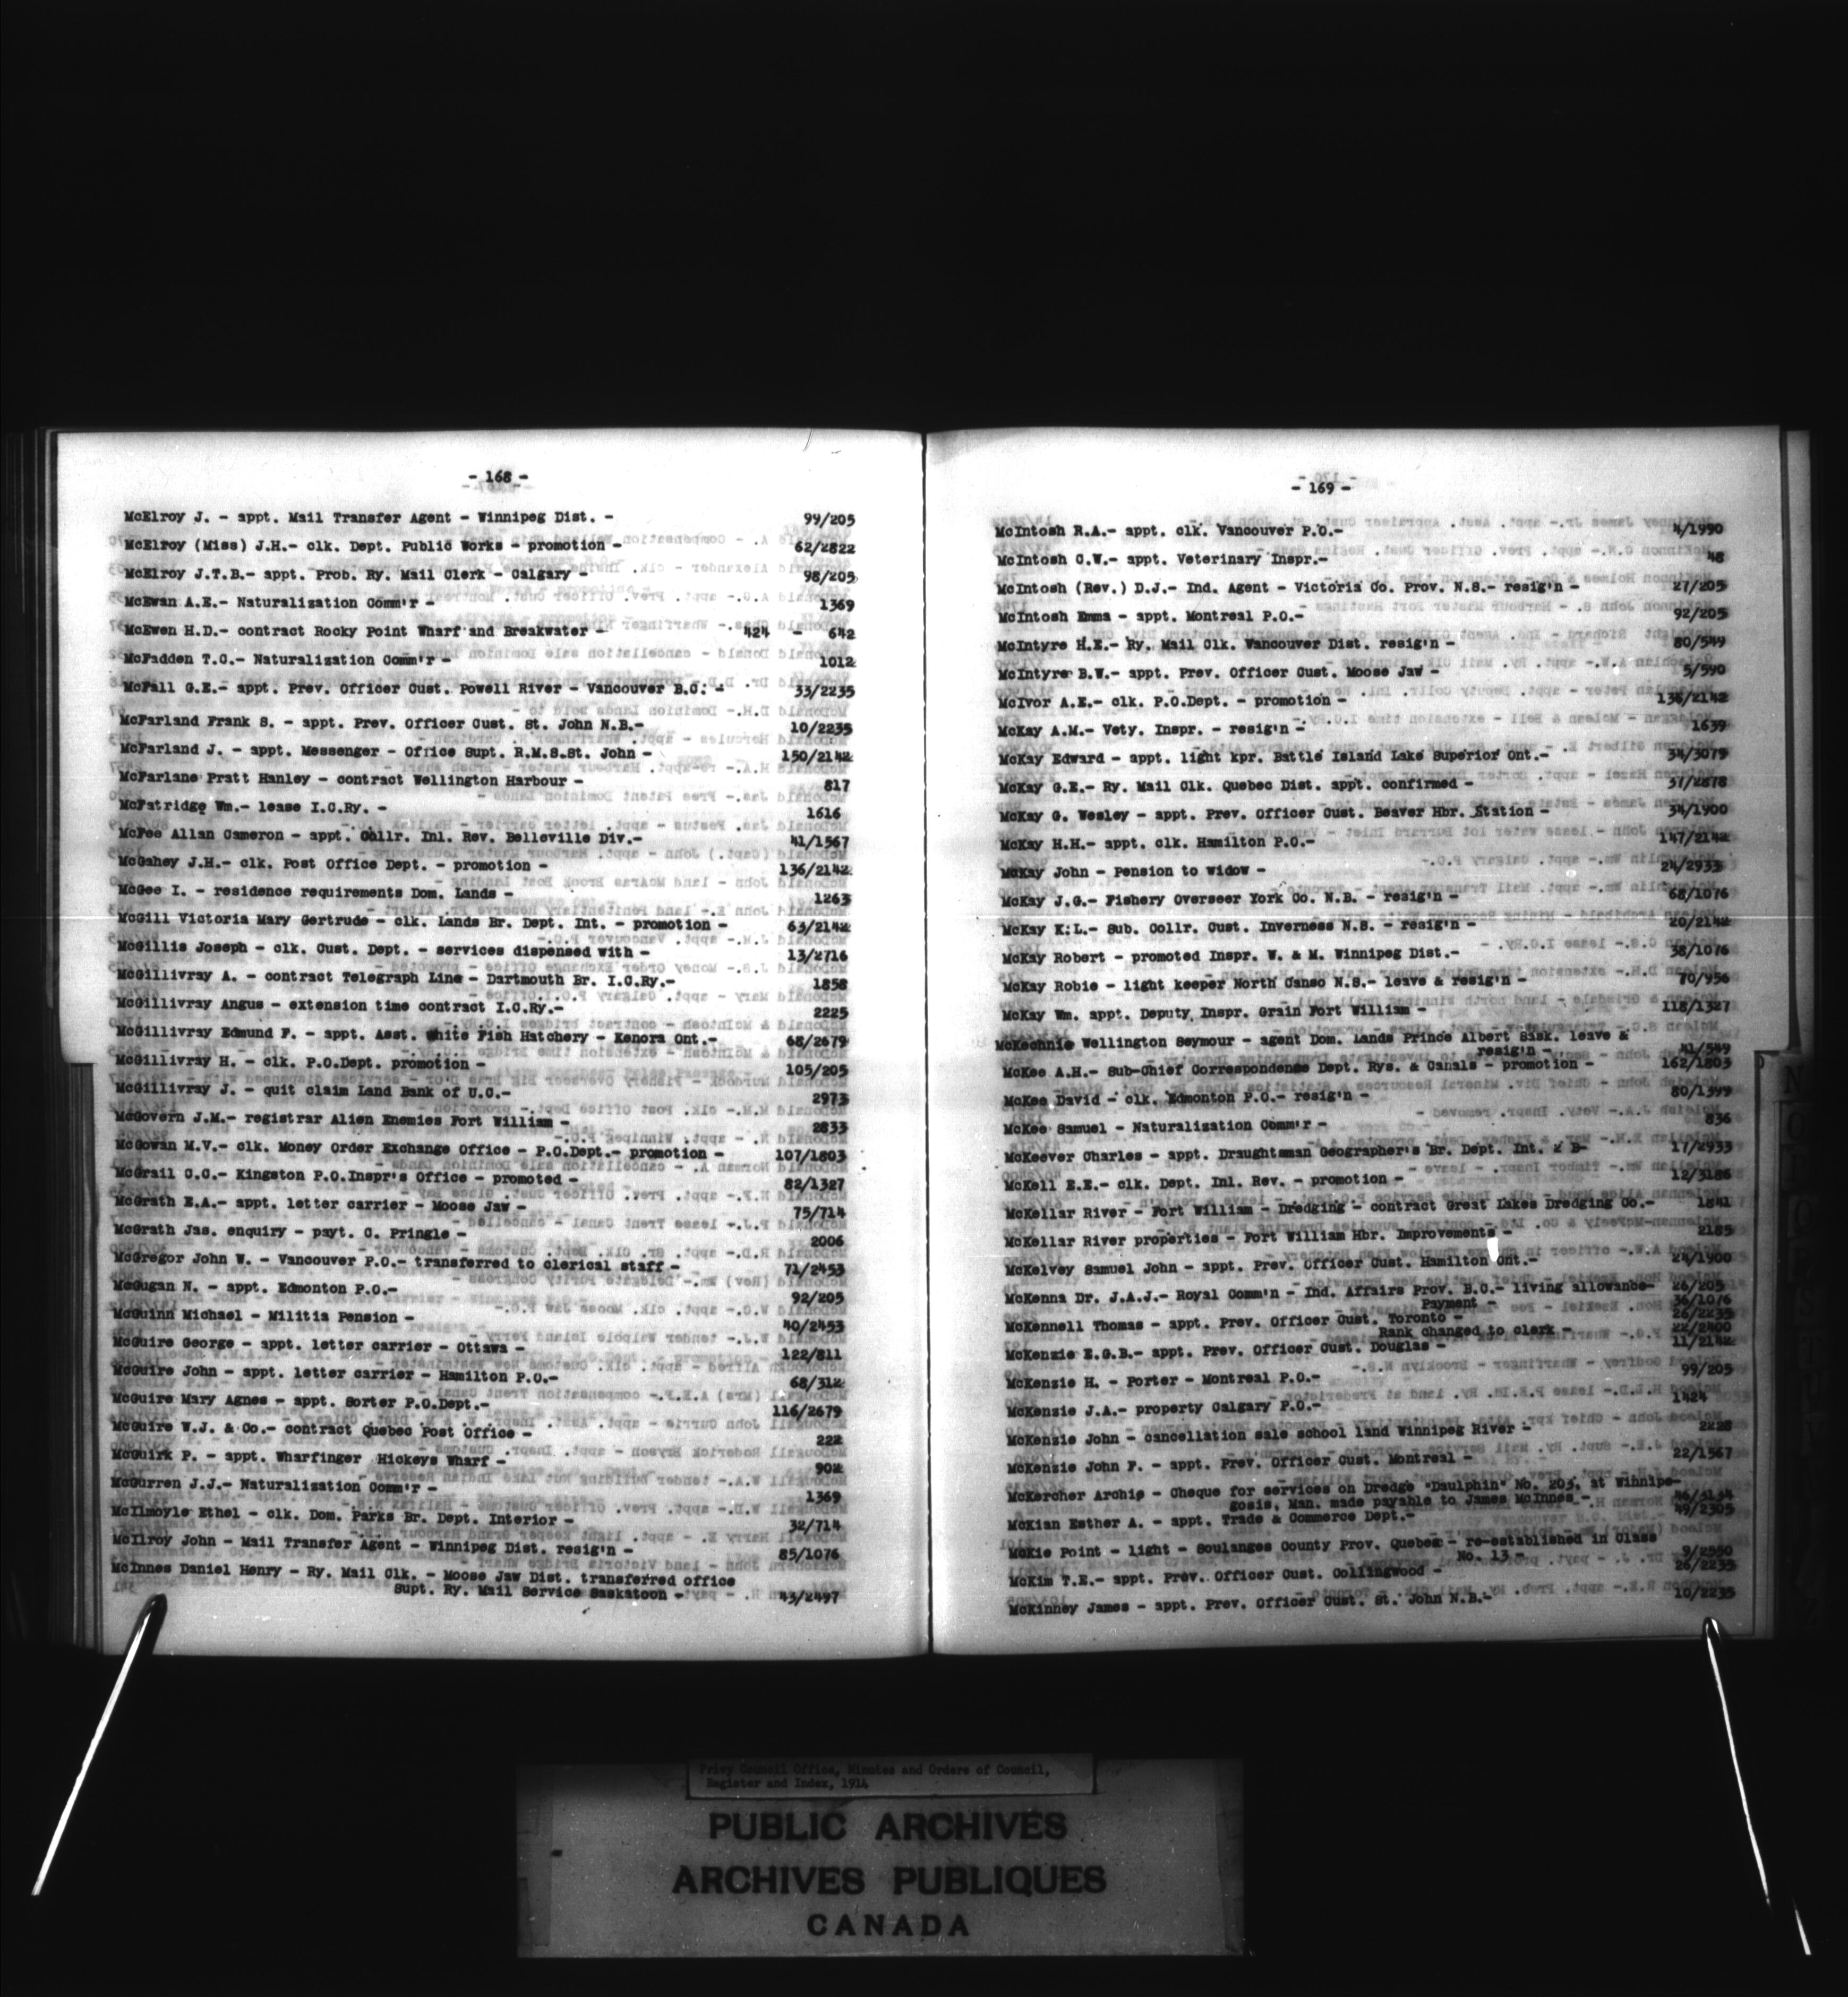 - 168 -
McElroy J. - appt. Mail Transfer Agent - Winnipeg Dist. - 99/205
McElroy (Miss) J.H.- clk. Dept. Public Works - promotion - 62/2822
McElroy J.T.B.- appt. Prob. Ry. Mail Clerk - Calgary - 98/205
McEwan A.E.- Naturalization Comm'r - 1369
McEwen H.D.- contract Rocky Point Wharf and Breakwater - 424 - 642
McFadden T.C.- Naturalization Comm'r - 1012
McFall G.E.- appt. Prev. Officer Cust. Powell River - Vancouver B.C. - 33/2235
McFarland Frank S. - appt. Prev. Officer Cust. St. John N.B.- 10/2235
McFarland J. - appt. Messenger - Office Supt. R.M.S.St. John - 150/2142
McFarlane Pratt Hanley - contract Wellington Harbour - 817
McFatridge Wm.- lease I.C.Ry. - 1616
McFee Allan Cameron - appt. Collr. Inl. Rev. Belleville Div.- 41/1567
McGahey J.H.- clk. Post Office Dept. - promotion - 136/2142
McGee I. - residence requirements Dom. Lands - 1263
McGill Victoria Mary Gertrude - clk. Lands Br. Dept. Int. - promotion - 63/2142
McGillis Joseph - clk. Cust. Dept. - services dispensed with - 13/2716
McGillivray A. - contract Telegraph Line - Dartmouth Br. I.C.Ry.- 1858
McGillivray Angus - extension time contract I.C.Ry.- 2225
McGillivray Edmund F. - appt. Asst. White Fish Hatchery - Kenora Ont.- 68/2679
McGillivray H. - clk. P.O.Dept. promotion - 105/205
McGillivray J. - quit claim Land Bank of U.C.- 2973
McGovern J.M.- registrar Alien Enemies Fort William - 2833
McGowan M.V.- clk. Money Order Exchange Office - P.O.Dept.- promotion - 107/1803
McGrail C.C.- Kingston P.O.Inspr's Office - promoted - 82/1327
McGrath E.A.- appt. letter carrier - Moose Jaw - 75/714
McGrath Jas. enquiry - payt. C. Pringle - 2006
McGregor John W. - Vancouver P.O.- transferred to clerical staff - 71/2453
McGugan N. - appt. Edmonton P.O.- 92/205
McGuinn Michael - Militia Pension - 40/2453
McGuire George - appt. letter carrier - Ottawa - 122/811
McGuire John - appt. letter carrier - Hamilton P.O.- 68/312
McGuire Mary Agnes - appt. Sorter P.O.Dept.- 116/2679
McGuire W.J. & Co.- contract Quebec Post Office - 222
McGuirk P. - appt. Wharfinger Hickeys Wharf - 902
McGurren J.J.- Naturalization Comm'r - 1369
McIlmoyle Ethel - clk. Dom. Parks Br. Dept. Interior - 32/714
McIlroy John - Mail Transfer Agent - Winnipeg Dist. resig'n - 85/1076
McInnes Daniel Henry - Ry. Mail Clk. - Moose Jaw Dist. transferred office
Supt. Ry. Mail Service Saskatoon - 43/2497
- 169 -
McIntosh R.A.- appt. clk. Vancouver P.O.- 4/1990
McIntosh C.W.- appt. Veterinary Inspr.- 48
McIntosh (Rev.) D.J.- Ind. Agent - Victoria Co. Prov. N.S.- resig'n - 27/205
McIntosh Emma - appt. Montreal P.O.- 92/205
McIntyre H.E.- Ry. Mail Clk. Vancouver Dist. resig'n - 80/549
McIntyre B.W.- appt. Prev. Officer Cust. Moose Jaw - 5/590
McIvor A.E.- clk. P.O.Dept. - promotion - 136/2142
McKay A.M.- Vety. Inspr. - resig'n - 1639
McKay Edward - appt. light kpr. Battle Island Lake Superior Ont.- 34/3079
McKay G.E.- Ry. Mail Clk. Quebec Dist. appt. confirmed - 37/2878
McKay G. Wesley - appt. Prev. Officer Cust. Beaver Hbr. Station - 34/1900
McKay H.H.- appt. clk. Hamilton P.O.- 147/2142
McKay John - Pension to widow - 24/2933
McKay J.G.- Fishery Overseer York Co. N.B. - resig'n - 68/1076
McKay K.L.- Sub. Collr. Cust. Inverness N.S. - resig'n - 20/2142
McKay Robert - promoted Inspr. W. & M. Winnipeg Dist.- 38/1076
McKay Robie - light keeper North Canso N.S.- leave & resig'n - 70/956
McKay Wm. appt. Deputy Inspr. Grain Fort William - 118/1327
McKechnie Wellington Seymour - agent Dom. Lands Prince Albert Sask. leave &
resig'n - 41/549
McKee A.H.- Sub-Chief Correspondence Dept. Rys. & Canals - promotion - 162/1803
McKee David - clk. Edmonton P.O.- resig'n - 80/1399
McKee Samuel - Naturalization Comm'r - 836
McKeever Charles - appt. Draughtsman Geographer's Br. Dept. Int. 2 B- 17/2933
McKell E.E.- clk. Dept. Inl. Rev. - promotion - 12/3186
McKellar River - Fort William - Dredging - contract Great Lakes Dredging Co.- 1841
McKellar River properties - Fort William Hbr. Improvements - 2185
McKelvey Samuel John - appt. Prev. Officer Cust. Hamilton Ont.- 24/1900
McKenna Dr. J.A.J.- Royal Comm'n - Ind. Affairs Prov. B.C.- living allowance- 26/205
Payment - 36/1076
McKennell Thomas - appt. Prev. Officer Cust. Toronto - 26/2235
Rank changed to clerk - 22/2400
McKenzie E.G.B.- appt. Prev. Officer Cust. Douglas - 11/2142
McKenzie H. - Porter - Montreal P.O.- 99/205
McKenzie J.A.- property Calgary P.O.- 1424
McKenzie John - cancellation sale school land Winnipeg River - 2228
McKenzie John F. - appt. Prev. Officer Cust. Montreal - 22/1567
McKercher Archie - Cheque for services on Dredge "Daulphin" No. 203, at Winnipe-
gosis, Man. made payable to James McInnes - 46/3134
McKian Esther A. - appt. Trade & Commerce Dept.- 49/2305
McKie Point - light - Soulanges County Prov. Quebec - re-established in Class
No. 13 - 9/2550
McKim T.E.- appt. Prev. Officer Cust. Collingwood - 26/2235
McKinney James - appt. Prev. Officer Cust. St. John N.B.- 10/2235
Privy Council Office, Minutes and Orders of Council,
Register and Index, 1914
PUBLIC ARCHIVES
ARCHIVES PUBLIQUES
CANADA